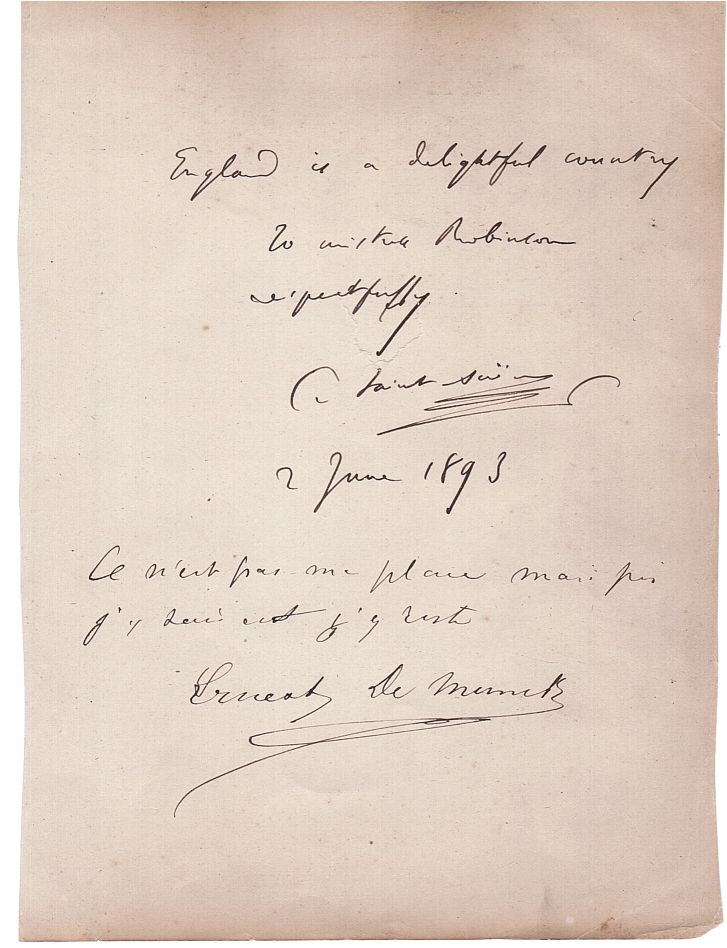 England is a delightful country
To mistress Robinson
respectfully
C. Saint-Saëns
2 June 1893
Ce n'est pas ma place mais puis
j'y suis et j'y reste
Ernest De Munck